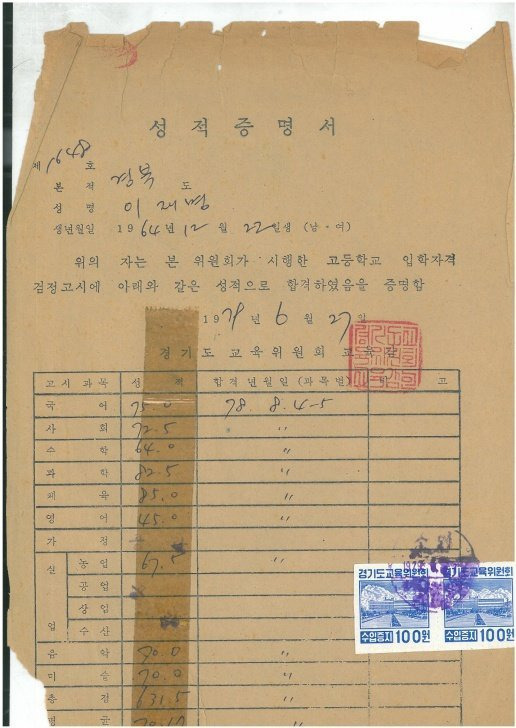 성적증명서
제 호
본 적 경북 도
성 명 이재명
생년월일 1964년 12월 22일생 (남·여)
위의 자는 본 위원회가 시행한 고등학교 입학자격
검정고시에 아래와 같은 성적으로 합격하였음을 증명함
1979년 6월 27일
경기도 교육위원회 교육감
고시과목 성 적 합격년월일(과목별) 비 고
국 어 75.0 78. 8. 4-5
사 회 72.5 〃
수 학 64.0 〃
과 학 82.5 〃
체 육 85.0 〃
영 어 45.0 〃
가 정
실 업
농업 67.5 〃
공업
상업
수산
음 악 70.0 〃
미 술 70.0 〃
총 점 631.5 〃
평 균
경기도교육위원회 경기도교육위원회
수입증지 100원 수입증지 100원